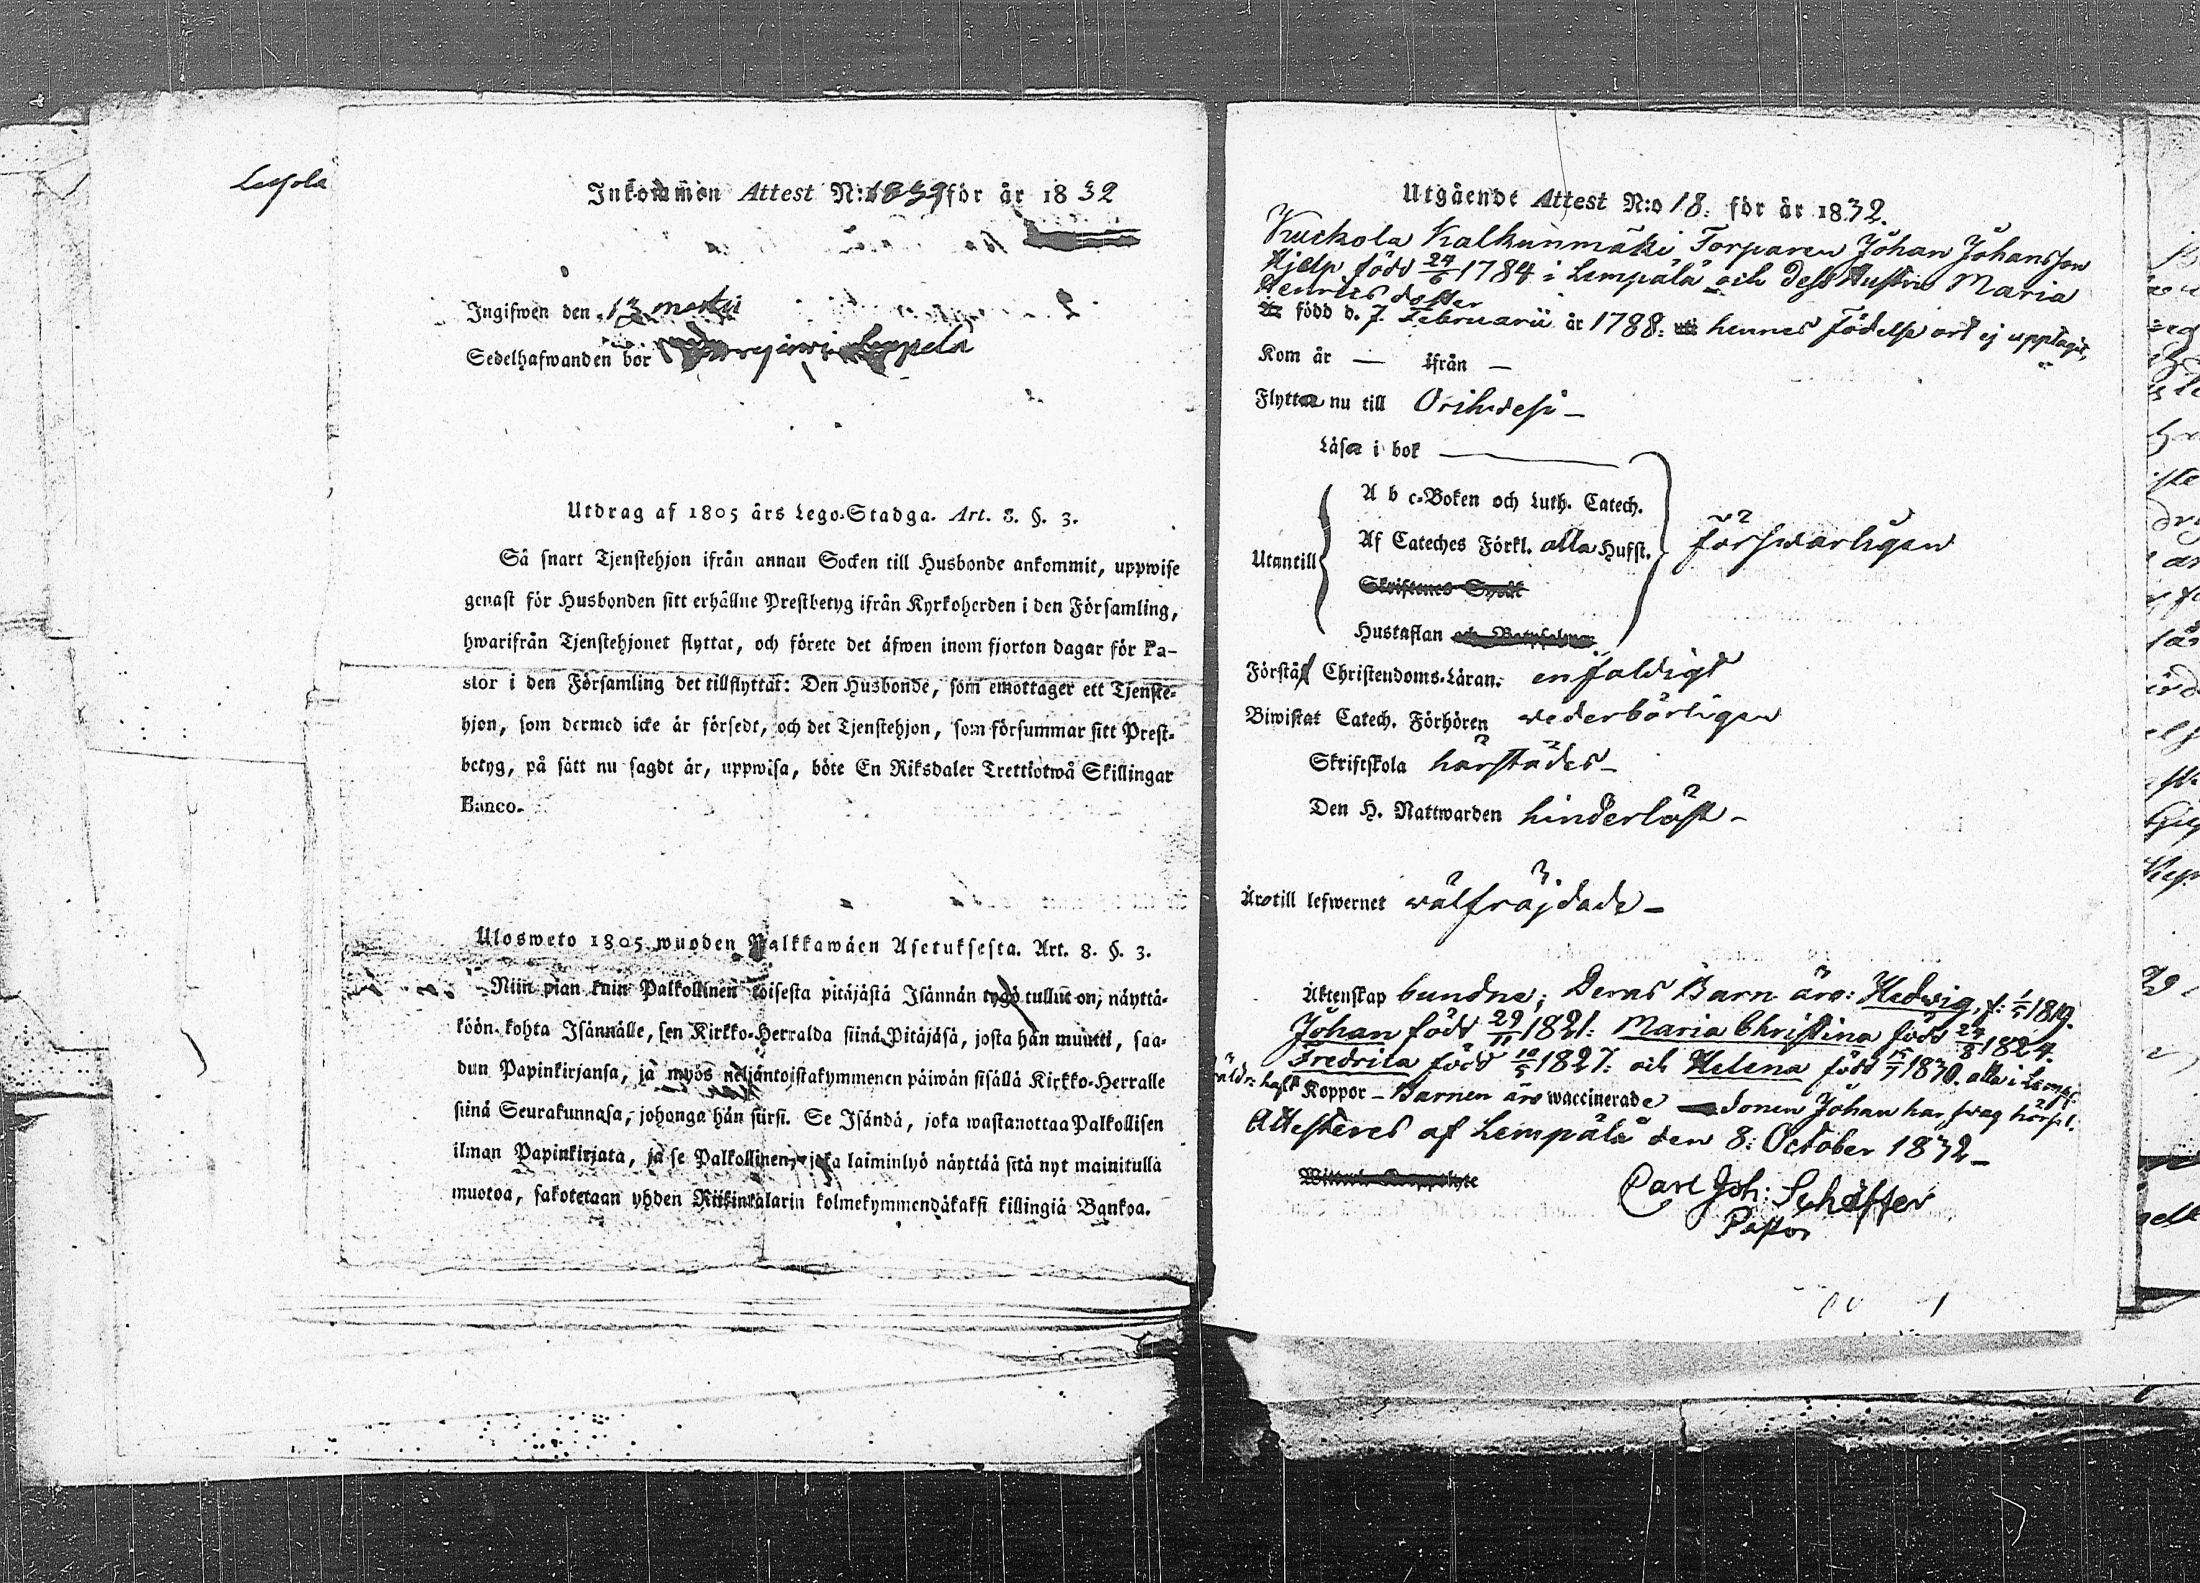 Inkommen Attest N:o 39 för år 1832
Ingifwen den 13 martii
Sedelhafwanden bor
Utdrag af 1805 års Lego-Stadga. Art. 8. §. 3.
Så snart Tjenstehjon ifrån annan Socken till Husbonde ankommit, uppwise
genast för Husbonden sitt erhållne Prestbetyg ifrån Kyrkoherden i den Församling,
hwarifrån Tjenstehjonet flyttat, och förete det äfwen inom fjorton dagar för Pa-
stor i den Församling det tillflyttat: Den Husbonde, som emottager ett Tjenste-
hjon, som dermed icke är försedt, och det Tjenstehjon, som försummar sitt Prest-
betyg, på sätt nu sagdt är, uppwisa, böte En Riksdaler Trettiotwå Skillingar
Banco.
Ulosweto 1805 wuoden Palkkawäen Asetuksesta. Art. 8. §. 3.
Niin pian kuin Palkollinen toisesta pitäjästä Isännän tygö tullut on, näyttä-
köön kohta Isännälle, sen Kirkko-Herralda siinä Pitäjäsä, josta hän muutti, saa-
dun Papinkirjansa, ja myös neljäntoistakymmenen päiwän sisällä Kirkko-Herralle
siinä Seurakunnasa, johonga hän siirsi. Se Isändä, joka wastanottaa Palkollisen
ilman Papinkirjata, ja se Palkollinen, joka laiminlyö näyttää sitä nyt mainitulla
muotoa, sakotetaan yhden Riikintalarin kolmekymmendäkaksi killingiä Bankoa.
Utgående Attest N:o 18. för år 1832.
Kuckola Kalkunmäki Torparen Johan Johansson
Hjelp född 24/6 1784 i Lempälä och dess Hustru Maria
Henricsdotter
född d. 7. Februarii år 1788: hennes födelse ort ej upptagit,
Kom år — ifrån —
Flytta nu till Orihvesi —
Läsa i bok
A b c-Boken och Luth. Catech.
Af Cateches Förkl. alla Hufst.
Utantill
försvarligen
Skriftenes Språk
Hustaflan och Botpsalmer
Förstå Christendoms-Läran. enfaldigt
Biwistat Catech. Förhören wederbörligen
Skriftskola härstädes —
Den H. Nattwarden hinderlöst —
Äro till lefwernet wälfräjdade —
Äktenskap bundne; Deras Barn äro: Hedwig, f: 1/5 1819.
Johan född 29/11 1821: Maria Christina född 24/8 1824.
Fredrica född 10/5 1827: och Helena född 15/7 1830. alla i Lempälä
haft Koppor — Barnen äro waccinerade Sonen Johan har swag hörsel.
Attesteres af Lempälä den 8: October 1832 —
Carl Joh: Schäffer
Pastor